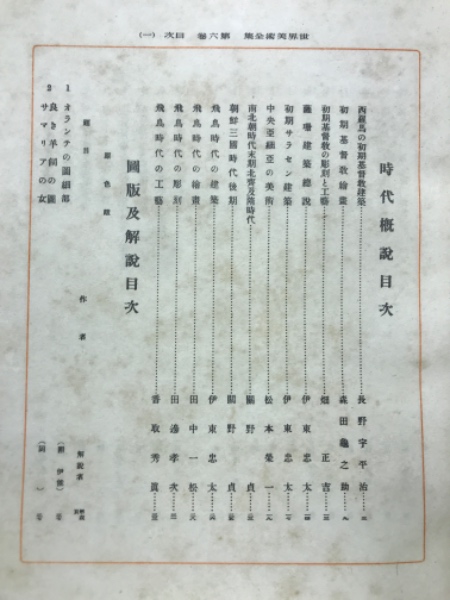 世界美術全集 第六卷 目次 (一)
時代概說目次
西羅馬の初期基督教建築 長野宇平治
初期基督教繪畫 森田龜之助
初期基督教の彫刻と工藝 畑正吉
薩珊建築總說 伊東忠太
初期サラセン建築 伊東忠太
中央亞細亞の美術 松本榮一
南北朝時代末期北齊及隋時代 關野貞
朝鮮三國時代後期 關野貞
飛鳥時代の建築 伊東忠太
飛鳥時代の繪畫 田中一松
飛鳥時代の彫刻 田邊孝次
飛鳥時代の工藝 香取秀眞
圖版及解說目次
原色版
題目 作者 解說者
1 オランテの圖細部
2 良き羊飼の圖
サマリアの女 (同)